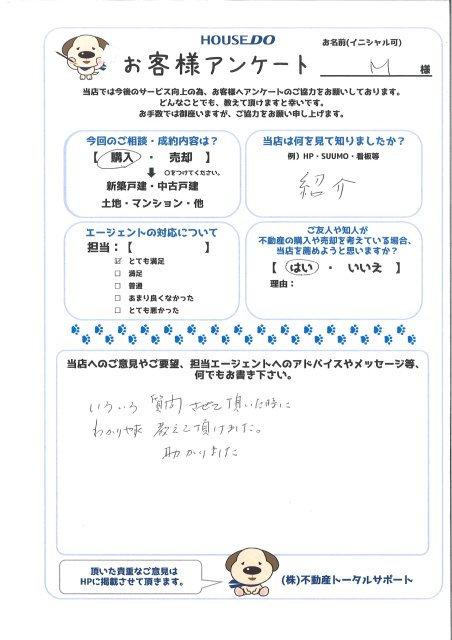 HOUSEDO
お客様アンケート
お名前(イニシャル可)
M 様
当店では今後のサービス向上の為、お客様へアンケートのご協力をお願いしております。
どんなことでも、教えて頂けますと幸いです。
お手数では御座いますが、ご協力をお願い申し上げます。
今回のご相談・成約内容は?
【 購入 ・ 売却 】
○をつけてください。
新築戸建・中古戸建
土地・マンション・他
当店は何を見て知りましたか?
例)HP・SUUMO・看板等
紹介
エージェントの対応について
担当:【 】
☑ とても満足
□ 満足
□ 普通
□ あまり良くなかった
□ とても悪かった
ご友人や知人が
不動産の購入や売却を考えている場合、
当店を薦めようと思いますか?
【 はい ・ いいえ 】
理由:
当店へのご意見やご要望、担当エージェントへのアドバイスやメッセージ等、
何でもお書き下さい。
いろいろ 質問 させて頂いた時に
わかりやすく 教えて頂けました。
助かりました
頂いた貴重なご意見は
HPに掲載させて頂きます。
(株)不動産トータルサポート